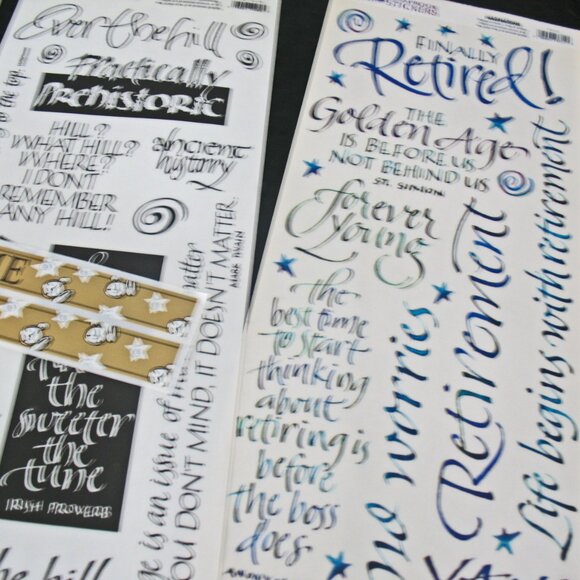 Over the hill
Practically
Prehistoric
to the top.
HILL?
WHAT HILL?
WHERE?
I DON'T
REMEMBER
ANY HILL!!
ancient
history
age is an issue of
matter
YOU DON'T MIND, IT DOESN'T MATTER.
MARK TWAIN
the
sweeter
the
tune
IRISH PROVERB
the hill
STICKERS
FINALLY
Retired!
THE
Golden Age
IS BEFORE US,
NOT BEHIND US
ST. SIMON
forever
young
the
best time
to start
thinking
about
retiring is
before
the boss
does
no worries
Retirement
Life begins with retirement